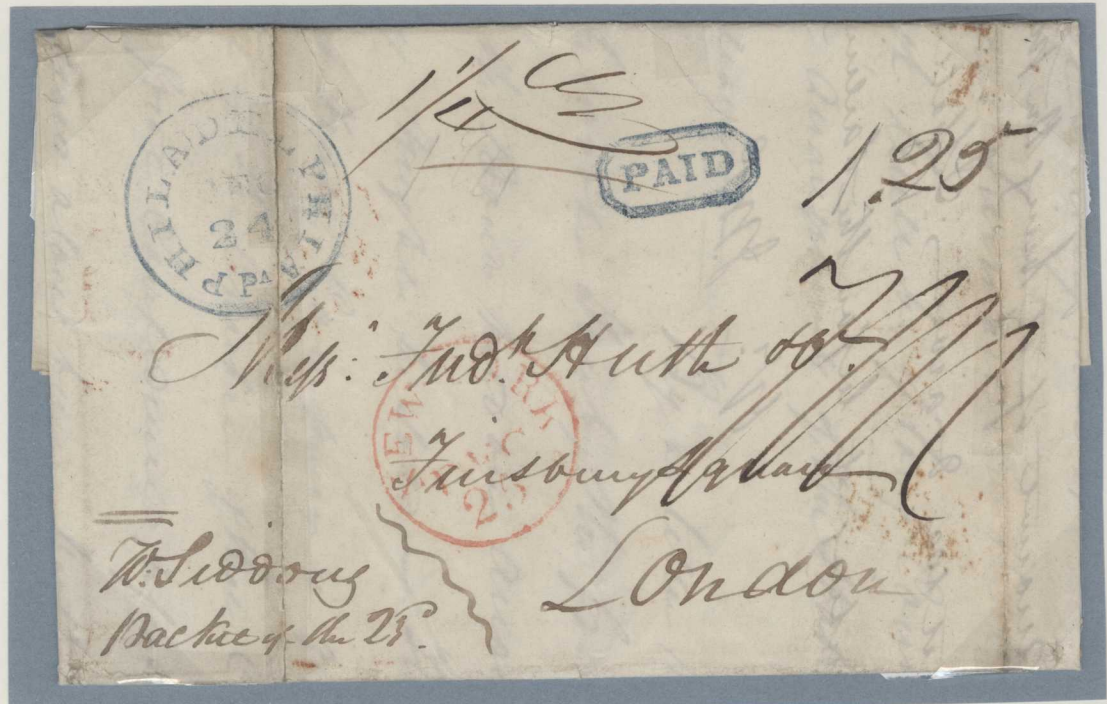 PHILADELPHIA Pᴬ
DEC
24
PAID
1.25
Messʳ: Fredᵏ Huth & Cº
NEW YORK
DEC
25
Finsbury Square
London
Pʳ Siddons
Packet of the 25ᵗʰ